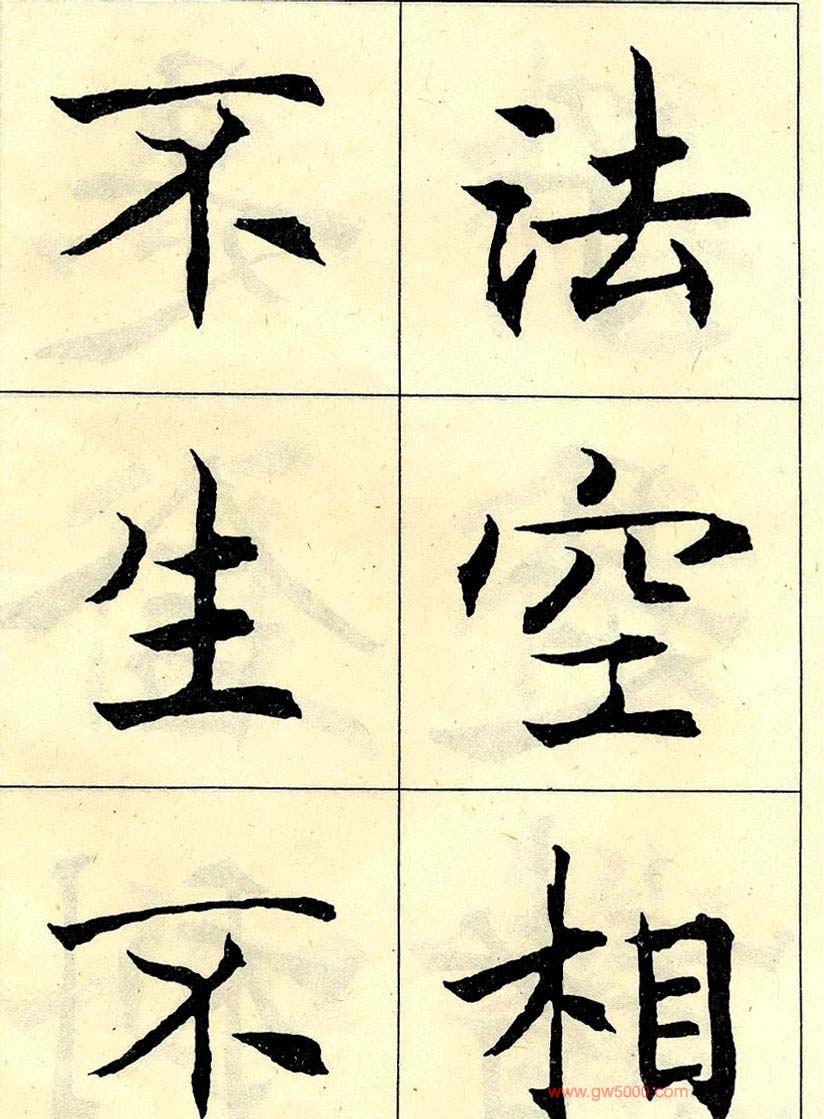 法空相
不生不
www.gw5000.com